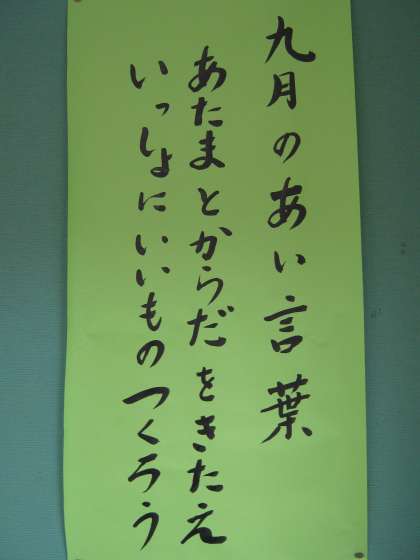 九月のあい言葉
あたまとからだをきたえ
いっしょにいいものつくろう